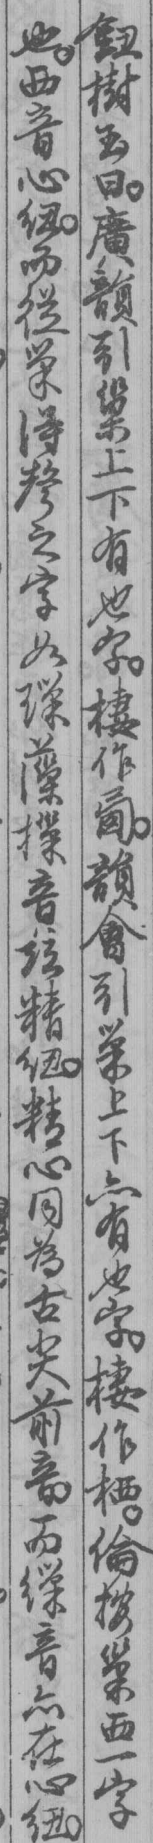 鈕樹玉曰。廣韻引巢上下有也字。棲作㢴。韻會引巢上下亦有也字。棲作栖。倫按巢西一字
也。西音心紐。而從巢得聲之字如璅藻操音竝精紐。精心同為古尖前音。而繅音亦在心紐。